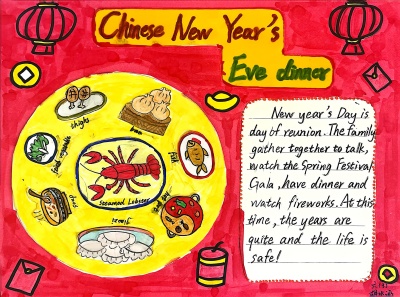 Chinese New Year's
Eve dinner
thighs
buns
Fish
Steamed Lobster
New year's Day is
day of reunion. The family
gather together to talk,
watch the Spring Festival
Gala, have dinner and
watch fireworks. At this
time, the years are
quite and the life is
safe!